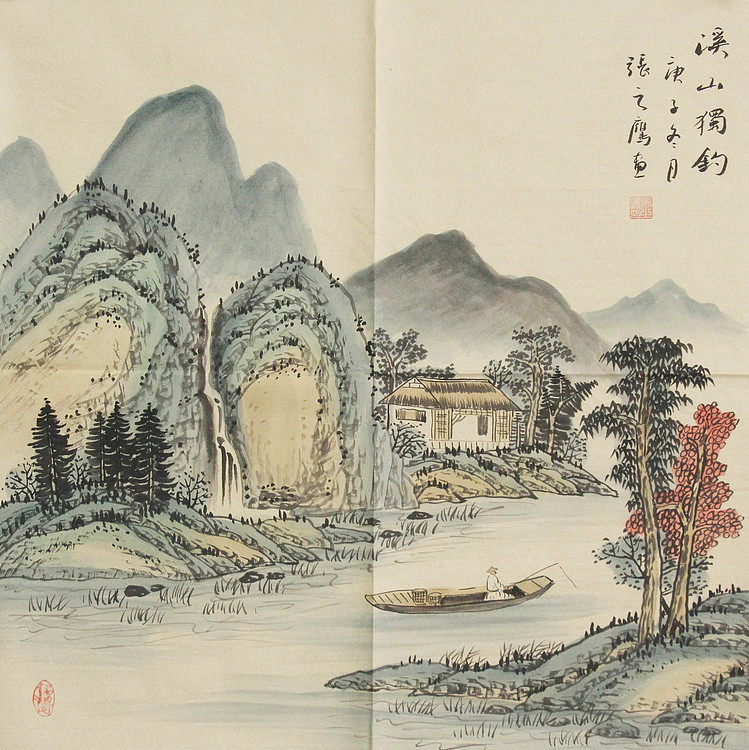 溪山獨釣
庚子冬月
張之鷹画